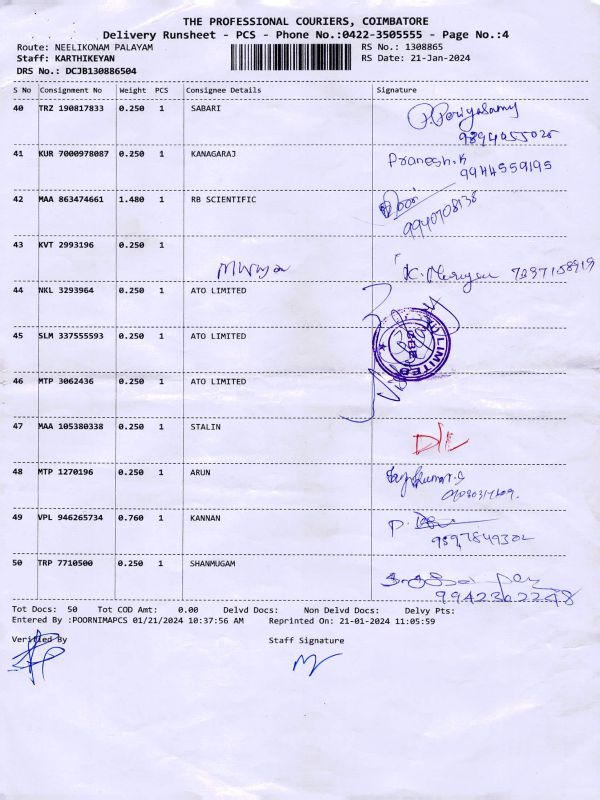 THE PROFESSIONAL COURIERS, COIMBATORE
Delivery Runsheet - PCS - Phone No.:0422-3505555 - Page No.:4
Route: NEELIKONAM PALAYAM RS No.: 1308865
Staff: KARTHIKEYAN RS Date: 21-Jan-2024
DRS No.: DCJB130886504
S No Consignment No Weight PCS Consignee Details Signature
40 TRZ 190817833 0.250 1 SABARI P. Periyasamy
41 KUR 7000978087 0.250 1 KANAGARAJ Pranesh.K
9944559195
42 MAA 863474661 1.480 1 RB SCIENTIFIC
9940708138
43 KVT 2993196 0.250 1
44 NKL 3293964 0.250 1 ATO LIMITED
45 SLM 337555593 0.250 1 ATO LIMITED
LIMITED
46 MTP 3062436 0.250 1 ATO LIMITED
47 MAA 105380338 0.250 1 STALIN D/L
48 MTP 1270196 0.250 1 ARUN
49 VPL 946265734 0.760 1 KANNAN P.
9597849302
50 TRP 7710500 0.250 1 SHANMUGAM
9942362248
Tot Docs: 50 Tot COD Amt: 0.00 Delvd Docs: Non Delvd Docs: Delvy Pts:
Entered By :POORNIMAPCS 01/21/2024 10:37:56 AM Reprinted On: 21-01-2024 11:05:59
Verified By Staff Signature